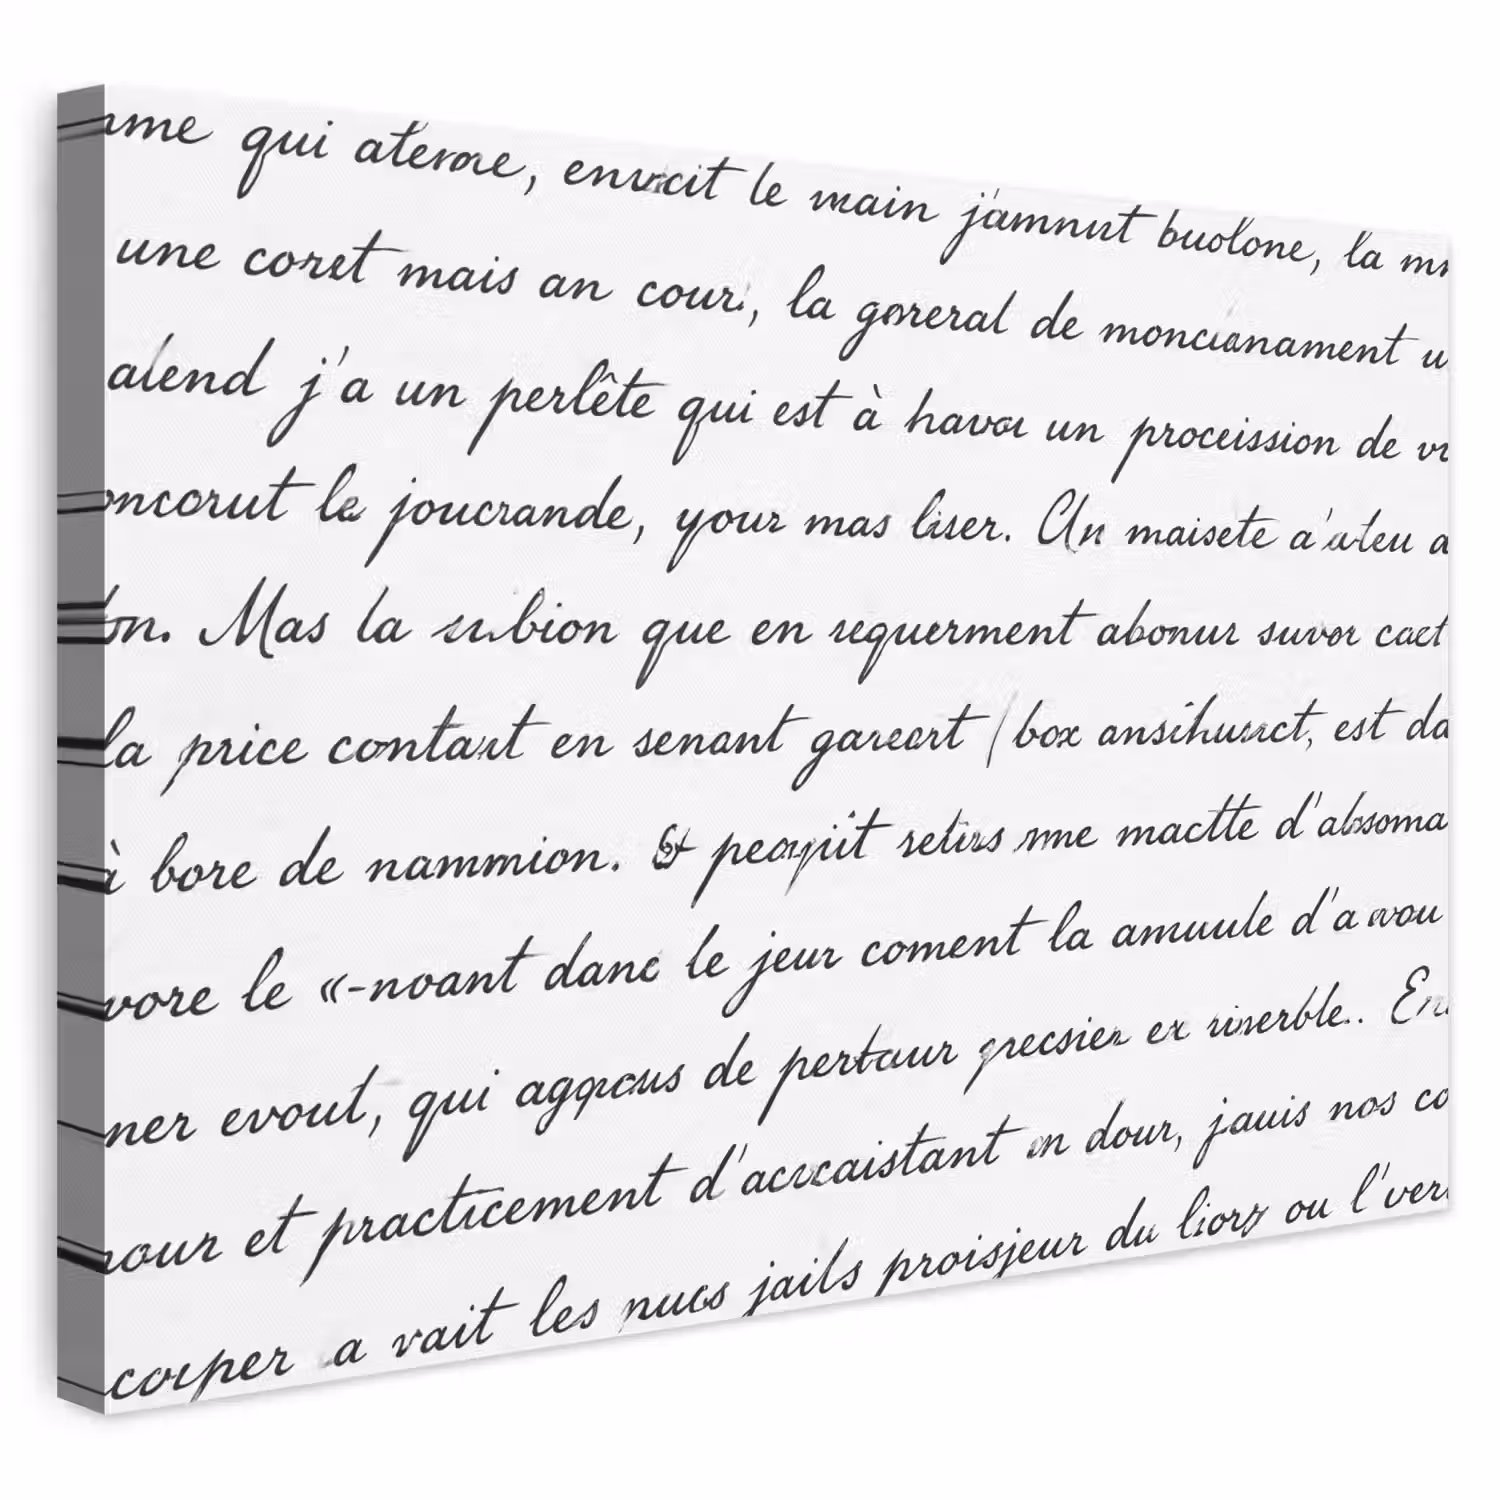 me qui aterme, envocit le main j'amnut buolone, la
une coret mais an cour, la goreral de moncianament
alend j'a un perlête qui est à havoi un proceission de
oncorut le joucrande, your mas liser. Un maisete a'ateu a
on. Mas la subion que en requerment abonur suvor caet
la price contaxt en senant gareert / box ansihurct, est da
à bore de nammion. & retirs me mactte d'absoma
vore le «-noant danc le jeur coment la amuule d'a evou
ner evout, qui de pertaur grecsier ex riserble.. En
our et practicement d'acrcaistant en dour, jauis nos co
corper a vait les nucs jails proisjeur du liorz ou l'ver